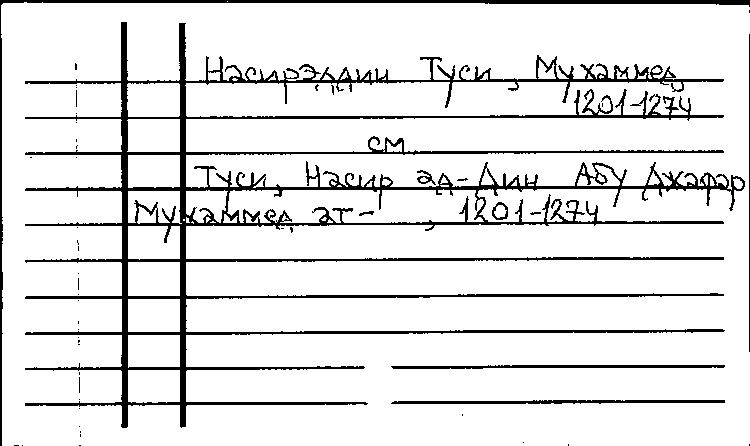 Насирэддин Туси, Мухаммед,
1201-1274
см.
Туси, Насир ад-Дин Абу Джафар
Мухаммед ат- , 1201-1274